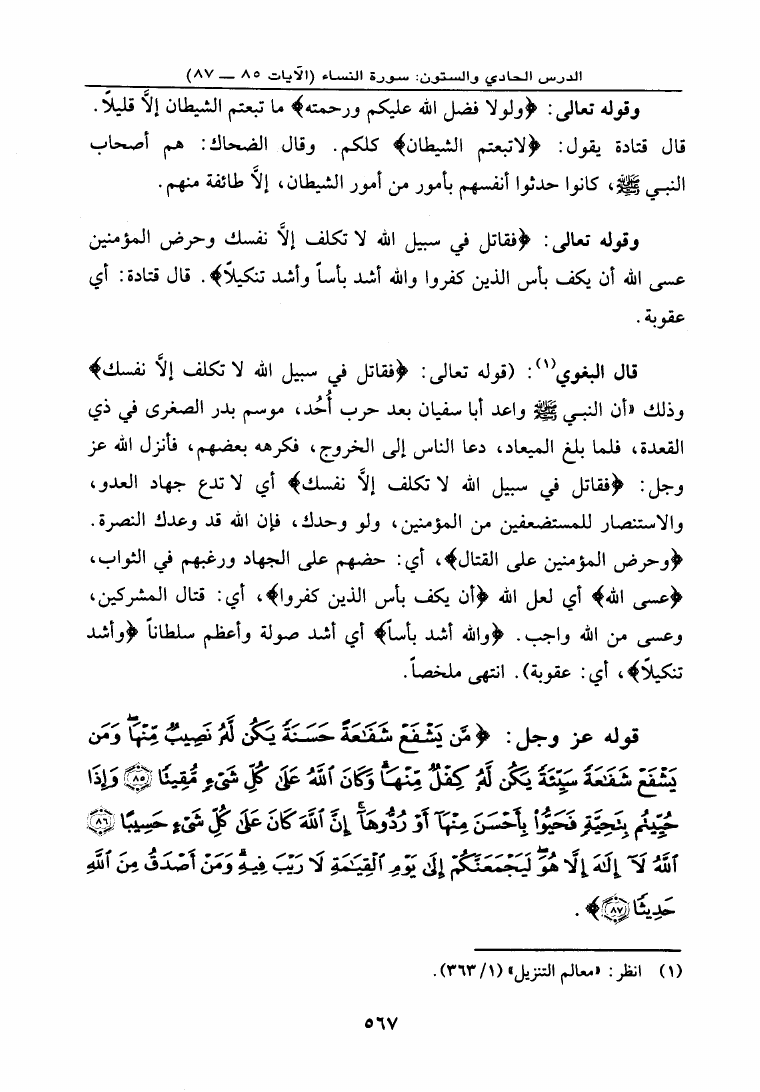 الدرس الحادي والستون: سورة النساء (الآيات ٨٥ — ٨٧)
وقوله تعالى: ﴿ولولا فضل الله عليكم ورحمته﴾ ما تبعتم الشيطان إلَّا قليلاً.
قال قتادة يقول: ﴿لاتبعتم الشيطان﴾ كلكم. وقال الضحاك: هم أصحاب
النبي ﷺ، كانوا حدثوا أنفسهم بأمور من أمور الشيطان، إلَّا طائفة منهم.
وقوله تعالى: ﴿فقاتل في سبيل الله لا تكلف إلَّا نفسك وحرض المؤمنين
عسى الله أن يكف بأس الذين كفروا والله أشد بأساً وأشد تنكيلاً﴾. قال قتادة: أي
عقوبة.
قال البغوي(١): (قوله تعالى: ﴿فقاتل في سبيل الله لا تكلف إلَّا نفسك﴾
وذلك «أن النبي ﷺ واعد أبا سفيان بعد حرب أُحُد، موسم بدر الصغرى في ذي
القعدة، فلما بلغ الميعاد، دعا الناس إلى الخروج، فكرهه بعضهم، فأنزل الله عز
وجل: ﴿فقاتل في سبيل الله لا تكلف إلَّا نفسك﴾ أي لا تدع جهاد العدو،
والاستنصار للمستضعفين من المؤمنين، ولو وحدك، فإن الله قد وعدك النصرة.
﴿وحرض المؤمنين على القتال﴾، أي: حضهم على الجهاد ورغبهم في الثواب،
﴿عسى الله﴾ أي لعل الله ﴿أن يكف بأس الذين كفروا﴾، أي: قتال المشركين،
وعسى من الله واجب. ﴿والله أشد بأساً﴾ أي أشد صولة وأعظم سلطاناً ﴿وأشد
تنكيلاً﴾، أي: عقوبة). انتهى ملخصاً.
قوله عز وجل: ﴿مَّن يَشْفَعْ شَفَٰعَةً حَسَنَةً يَكُن لَّهُۥ نَصِيبٌ مِّنْهَا ۖ وَمَن
يَشْفَعْ شَفَٰعَةً سَيِّئَةً يَكُن لَّهُۥ كِفْلٌ مِّنْهَا ۗ وَكَانَ ٱللَّهُ عَلَىٰ كُلِّ شَىْءٍ مُّقِيتًا ٨٥ وَإِذَا
حُيِّيتُم بِتَحِيَّةٍ فَحَيُّوا۟ بِأَحْسَنَ مِنْهَآ أَوْ رُدُّوهَآ ۗ إِنَّ ٱللَّهَ كَانَ عَلَىٰ كُلِّ شَىْءٍ حَسِيبًا ٨٦
ٱللَّهُ لَآ إِلَٰهَ إِلَّا هُوَ ۚ لَيَجْمَعَنَّكُمْ إِلَىٰ يَوْمِ ٱلْقِيَٰمَةِ لَا رَيْبَ فِيهِ ۗ وَمَنْ أَصْدَقُ مِنَ ٱللَّهِ
حَدِيثًا ٨٧﴾.
(١) انظر: «معالم التنزيل» (١/ ٣٦٣).
٥٦٧